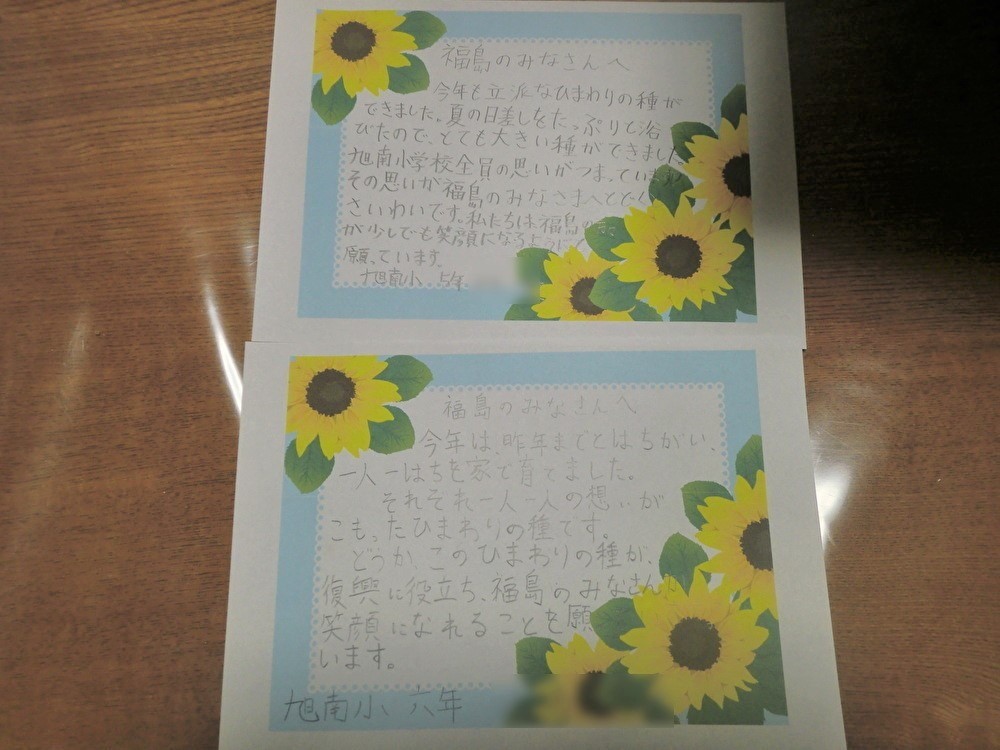 福島のみなさんへ
今年も立派なひまわりの種が
できました。夏の日差しをたっぷりと浴
びたので、とても大きい種ができました。
旭南小学校全員の思いがつまっていま
その思いが福島のみなさまへとどく
さいわいです。私たちは、福島の
が少しでも笑顔になるように
願っています。
旭南小 5年
福島のみなさんへ
今年は、昨年までとはちがい、
一人一はちを家で育てました。
それぞれ一人一人の想いが
こもったひまわりの種です。
どうか、このひまわりの種が、
復興に役立ち、福島のみなさんが
笑顔になれることを願
います。
旭南小 六年